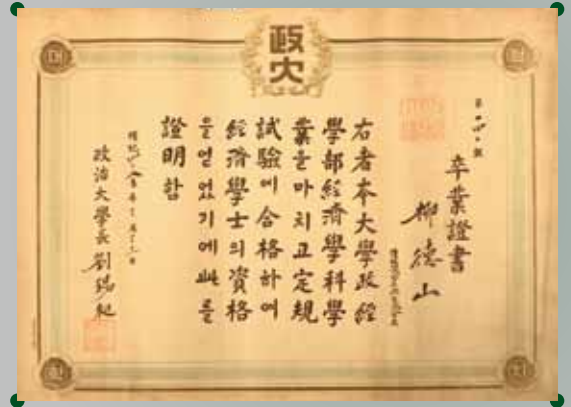 政大
卒業證書
柳德山
右者本大學政經
學部經濟學科學
業을마치고定規
試驗에合格하여
經濟學士의資格
을얻었기에此를
證明함
政治大學長 劉